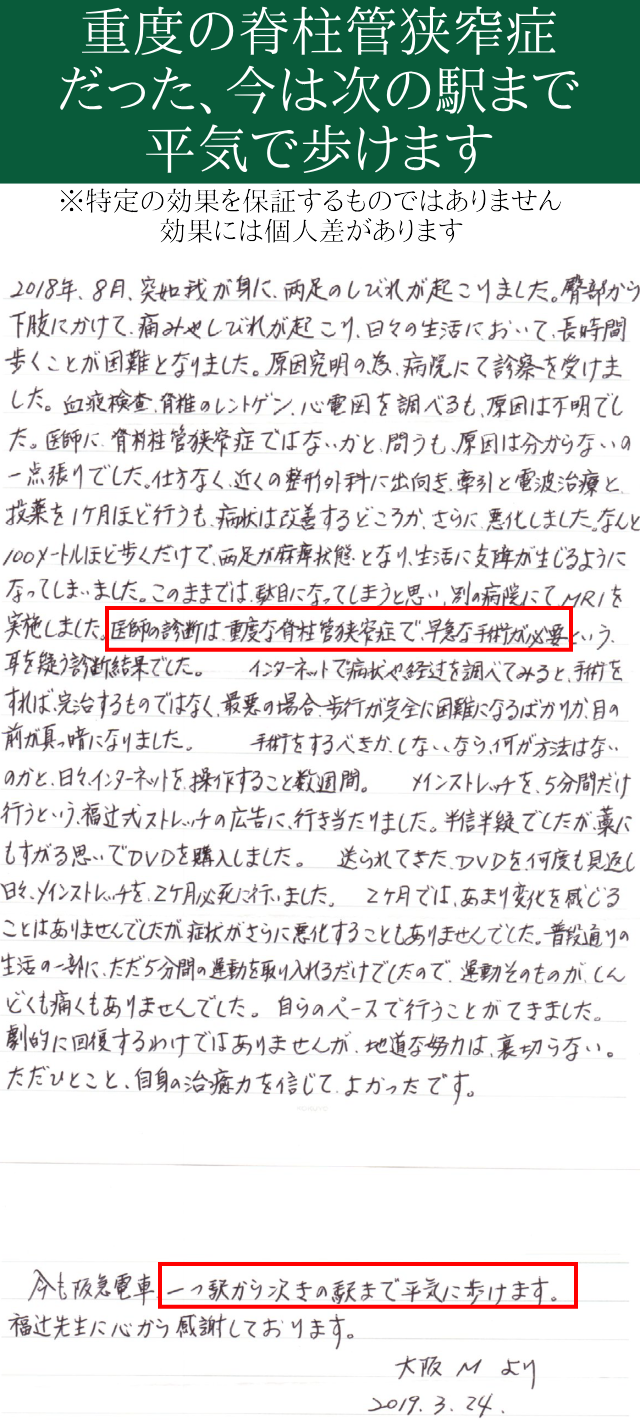 重度の脊柱管狭窄症
だった、今は次の駅まで
平気で歩けます
※特定の効果を保証するものではありません
効果には個人差があります
2018年、8月、突如我が身に、両足のしびれが起こりました。臀部から
下肢にかけて、痛みやしびれが起こり、日々の生活において、長時間
歩くことが困難となりました。原因究明の為、病院にて診察を受けま
した。血液検査、脊椎のレントゲン、心電図を調べるも、原因は不明でし
た。医師に、脊柱管狭窄症ではないかと、問うも、原因は分からないの
一点張りでした。仕方なく、近くの整形外科に出向き、牽引と電波治療と、
投薬を1ヶ月ほど行うも、病状は改善するどころか、さらに、悪化しました。なんと
100メートルほど歩くだけで、両足が麻痺状態となり、生活に支障が生じるように
なってしまいました。このままでは、駄目になってしまうと思い、別の病院にてMRIを
実施しました。医師の診断は、重度な脊柱管狭窄症で、早急な手術が必要という、
耳を疑う診断結果でした。 インターネットで病状や経過を調べてみると、手術を
すれば、完治するものではなく、最悪の場合、歩行が完全に困難になるばかりか、目の
前が真っ暗になりました。 手術をするべきか、しない、なら、何が方法はない
のかと、日々、インターネットを、操作すること数週間。 メインストレッチを、5分間だけ
行うという、福辻式ストレッチの広告に、行き当たりました。半信半疑でしたが、藁に
もすがる思いでDVDを購入しました。 送られてきた、DVDを、何度も見返し
日々、メインストレッチを、2ヶ月必死に行いました。 2ヶ月では、あまり変化を感じる
ことはありませんでしたが、症状がさらに悪化することもありませんでした。普段通りの
生活の一部に、ただ5分間の運動を取り入れるだけでしたので、運動そのものが、しん
どくも痛くもありませんでした。 自らのペースで行うことができました。
劇的に回復するわけではありませんが、地道な努力は、裏切らない。
ただひとこと、自身の治癒力を信じて、よかったです。
今も阪急電車、一つ駅から次きの駅まで平気に歩けます。
福辻先生に心から感謝しております。
大阪 M より
2019.3.24.